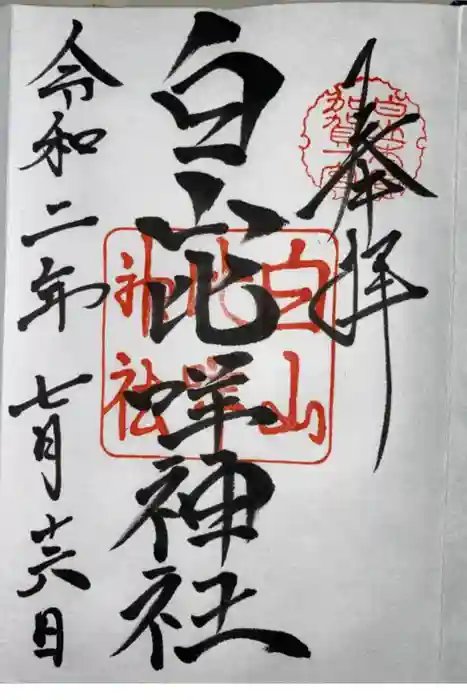 奉拝
白山比咩神社
令和二年七月十六日
白山
比咩
神社